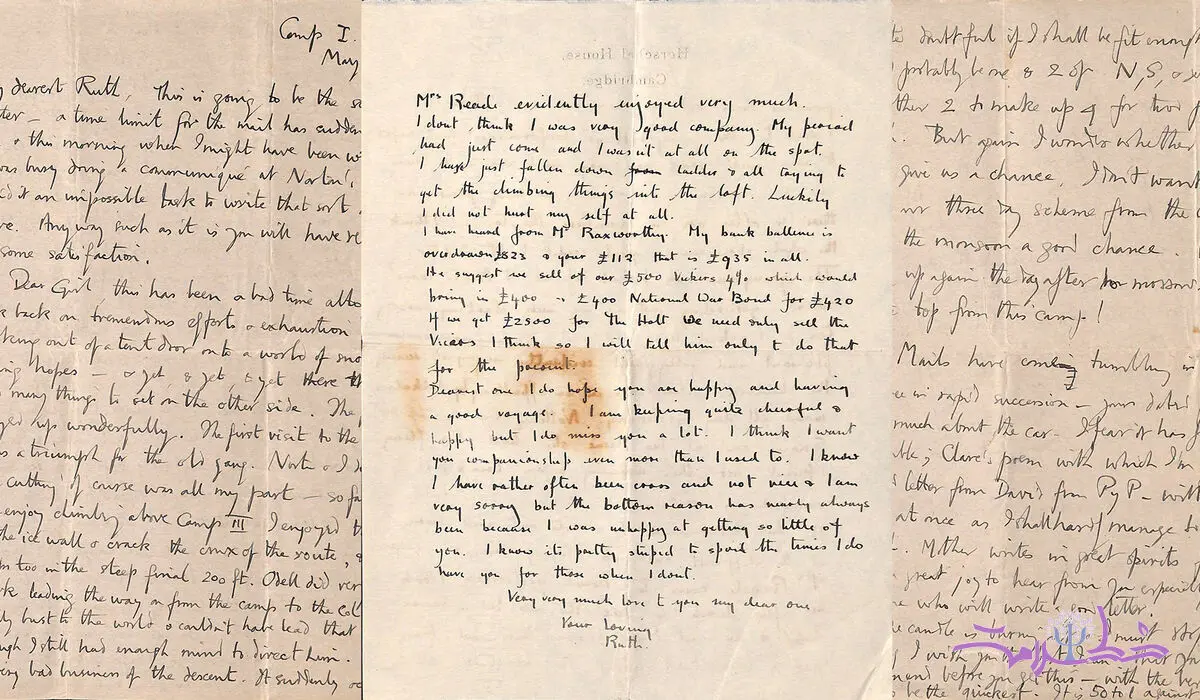 Camp I.
May
dearest Ruth, This is going to be the
ter – a time limit for the mail has sudden
this morning when I might have been
busy doing a communiqué at Norton's,
it an impossible task to write that sort
Anyway such as it is you will have
some satisfaction.
Dear Girl, this has been a bad time
back on tremendous efforts & exhaustion
out of a tent door onto a world of
hopes – & yet, & yet, & yet there
many things to set on the other side. The
up wonderfully. The first visit to the
a triumph for the old gang. Norton & I
cutting of course was all my part – so
enjoy climbing above Camp III I enjoyed
the ice wall & crack the crux of the route,
too in the steep final 200 ft. Odell did
leading the way on from the camp to the Col
bust to the world & couldn't have lead that
I still had enough mind to direct him.
bad business of the descent. It suddenly
Herschel House,
Cambridge.
Mrs Reade evidently enjoyed very much.
I dont think I was very good company. My period
had just come and I wasn't at all on the spot.
I have just fallen down from ladder & all taying to
get the climbing things into the loft. Luckily
I did not hurt my self at all.
I have heard from Mr Raxworthy. My bank ballence is
overdrawn £823 & your £112 that is £935 in all.
He suggest we sell of our £500 Vickers 4% which would
bring in £400 & £400 National War Bond for £420
If we get £2500 for The Holt we need only sell the
Vicars I think so I will tell him only to do that
for the present.
Dearest one I do hope you are happy and having
a good voyage. I am keeping quite cheerful &
happy but I do miss you a lot. I think I want
you companionship even more than I used to. I know
I have rather often been cross and not nice & I am
very sorry but the bottom reason has nearly always
been because I was unhappy at getting so little of
you. I know its pretty stuped to spoil the times I do
have you for those when I dont.
Very very much love to you my dear one
Your loving
Ruth.
doubtful if I shall be fit enough
probably be me & 2 of N, S, &
2 to make up 4 for two
But again I wonder whether
give us a chance. I don't want
three day scheme from the
the monsoon a good chance.
up again the day after
top from this camp!
Mails have coming tumbling in
in rapid succession – yours dated
much about the car – I fear it has
Clare's poem with which I'm
letter from David from Py P – with
at once as I shall hardly manage
Mother writes in great spirits
great joy to hear from you especially
who will write soon letter.
candle is burning I must stop
I wish you
and before you get this – with the
be the quickest. It is 50 to 1 against